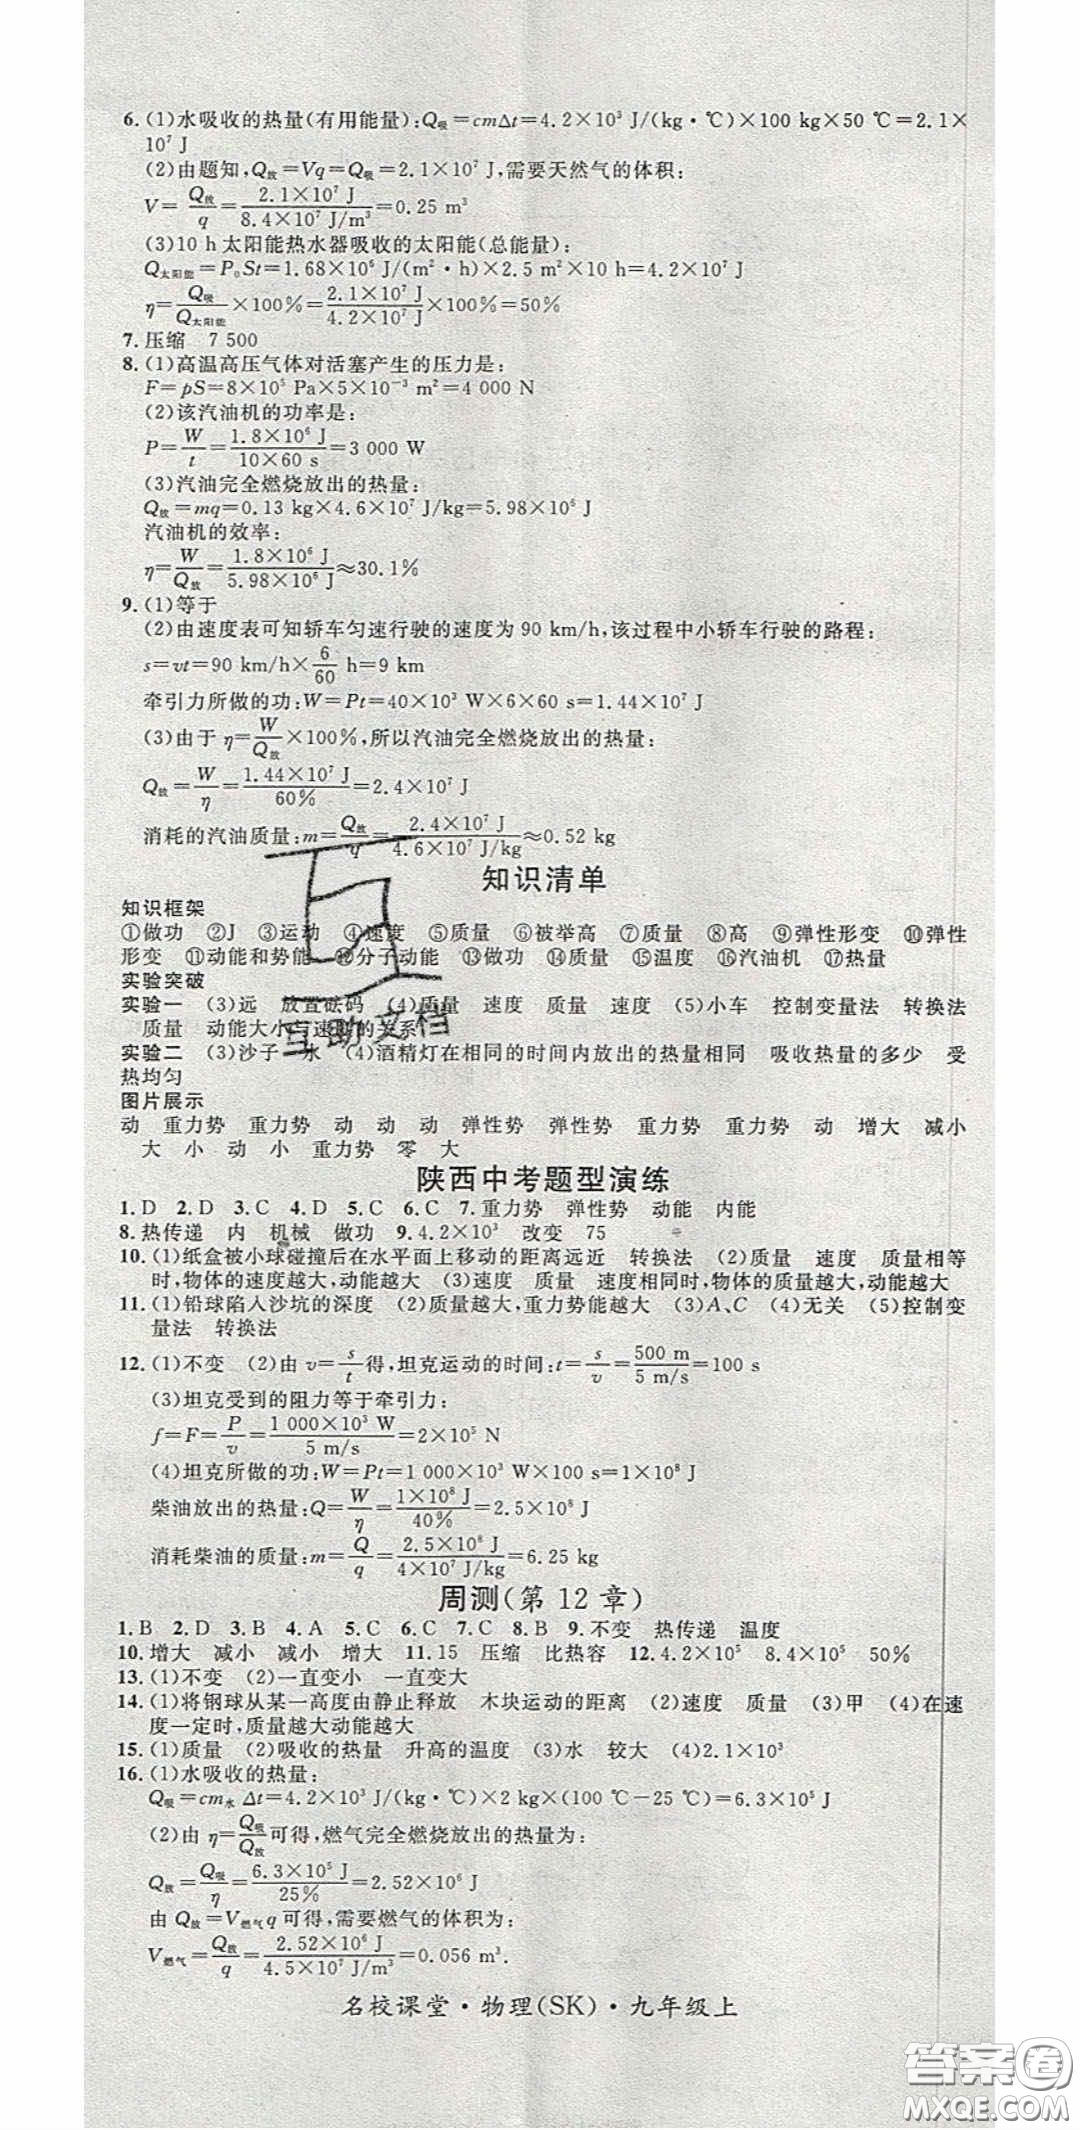 6. (1)水吸收的热量(有用能量):Q吸=cmΔt=4.2×10³ J/(kg·℃)×100 kg×50 ℃=2.1×
10⁷ J
(2)由题知,Q放=Vq=Q吸=2.1×10⁷ J,需要天然气的体积:
V=Q放/q=2.1×10⁷ J/8.4×10⁷ J/m³=0.25 m³
(3)10 h太阳能热水器吸收的太阳能(总能量):
Q太阳能=P₀St=1.68×10⁶ J/(m²·h)×2.5 m²×10 h=4.2×10⁷ J
η=Q吸/Q太阳能×100%=2.1×10⁷ J/4.2×10⁷ J×100%=50%
7. 压缩 7 500
8. (1)高温高压气体对活塞产生的压力是:
F=pS=8×10⁵ Pa×5×10⁻³ m²=4 000 N
(2)该汽油机的功率是:
P=W/t=1.8×10⁶ J/10×60 s=3 000 W
(3)汽油完全燃烧放出的热量:
Q放=mq=0.13 kg×4.6×10⁷ J/kg=5.98×10⁶ J
汽油机的效率:
η=W/Q放=1.8×10⁶ J/5.98×10⁶ J≈30.1%
9. (1)等于
(2)由速度表可知轿车匀速行驶的速度为 90 km/h,该过程中小轿车行驶的路程:
s=vt=90 km/h×6/60 h=9 km
牵引力所做的功:W=Pt=40×10³ W×6×60 s=1.44×10⁷ J
(3)由于 η=W/Q放×100%,所以汽油完全燃烧放出的热量:
Q放=W/η=1.44×10⁷ J/60%=2.4×10⁷ J
消耗的汽油质量:m=Q放/q=2.4×10⁷ J/4.6×10⁷ J/kg≈0.52 kg
知识清单
知识框架
①做功 ②J ③运动 ④速度 ⑤质量 ⑥被举高 ⑦质量 ⑧高 ⑨弹性形变 ⑩弹性
形变 ⑪动能和势能 ⑫分子动能 ⑬做功 ⑭质量 ⑮温度 ⑯汽油机 ⑰热量
实验突破
实验一 (3)远 放置砝码 (4)质量 速度 质量 速度 (5)小车 控制变量法 转换法
质量 动能大小与速度的关系
实验二 (3)沙子 水 (4)酒精灯在相同的时间内放出的热量相同 吸收热量的多少 受
热均匀
图片展示
动 重力势 重力势 动 动 动 弹性势 弹性势 重力势 重力势 动 增大 减小
大 小 动 小 重力势 零 大
互助文档
陕西中考题型演练
1. D 2. D 3. C 4. D 5. C 6. C 7. 重力势 弹性势 动能 内能
8. 热传递 内 机械 做功 9. 4.2×10³ 改变 75
10. (1)纸盒被小球碰撞后在水平面上移动的距离远近 转换法 (2)质量 速度 质量相等
时,物体的速度越大,动能越大 (3)速度 质量 速度相同时,物体的质量越大,动能越大
11. (1)铅球陷入沙坑的深度 (2)质量越大,重力势能越大 (3)A、C (4)无关 (5)控制变
量法 转换法
12. (1)不变 (2)由 v=s/t得,坦克运动的时间:t=s/v=500 m/5 m/s=100 s
(3)坦克受到的阻力等于牵引力:
f=F=P/v=1 000×10³ W/5 m/s=2×10⁵ N
(4)坦克所做的功:W=Pt=1 000×10³ W×100 s=1×10⁸ J
柴油放出的热量:Q=W/η=1×10⁸ J/40%=2.5×10⁸ J
消耗柴油的质量:m=Q/q=2.5×10⁸ J/4×10⁷ J/kg=6.25 kg
周测(第 12 章)
1. B 2. D 3. B 4. A 5. C 6. C 7. C 8. B 9. 不变 热传递 温度
10. 增大 减小 减小 增大 11. 15 压缩 比热容 12. 4.2×10⁵ 8.4×10⁵ 50%
13. (1)不变 (2)一直变小 一直变大
14. (1)将钢球从某一高度由静止释放 木块运动的距离 (2)速度 质量 (3)甲 (4)在速
度一定时,质量越大动能越大
15. (1)质量 (2)吸收的热量 升高的温度 (3)水 较大 (4)2.1×10³
16. (1)水吸收的热量:
Q吸=cm水 Δt=4.2×10³ J/(kg·℃)×2 kg×(100 ℃−25 ℃)=6.3×10⁵ J
(2)由 η=Q吸/Q放可得,燃气完全燃烧放出的热量为:
Q放=Q吸/η=6.3×10⁵ J/25%=2.52×10⁶ J
由 Q放=V燃气q 可得,需要燃气的体积为:
V燃气=Q放/q=2.52×10⁶ J/4.5×10⁷ J/m³=0.056 m³.
名校课堂·物理(SK)·九年级上
答案卷
MXQE.COM